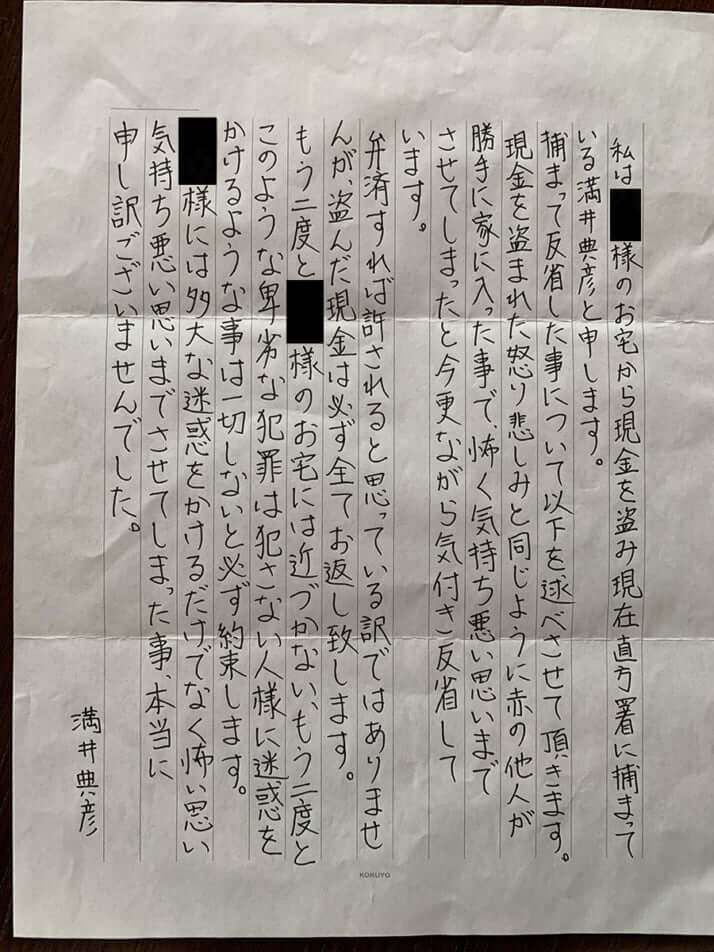 私は 様のお宅から現金を盗み現在直方署に捕まって
いる満井典彦と申します。
捕まって反省した事について以下を述べさせて頂きます。
現金を盗まれた怒り悲しみと同じように赤の他人が
勝手に家に入った事で、怖く気持ち悪い思いまで
させてしまったと今更ながら気付き反省して
います。
弁済すれば許されると思っている訳ではありませ
んが、盗んだ現金は必ず全てお返し致します。
もう二度と 様のお宅には近づかない、もう二度と
このような卑劣な犯罪は犯さない人様に迷惑を
かけるような事は一切しないと必ず約束します。
様には多大な迷惑をかけるだけでなく怖い思い
気持ち悪い思いまでさせてしまった事、本当に
申し訳ございませんでした。
満井典彦
KOKUYO